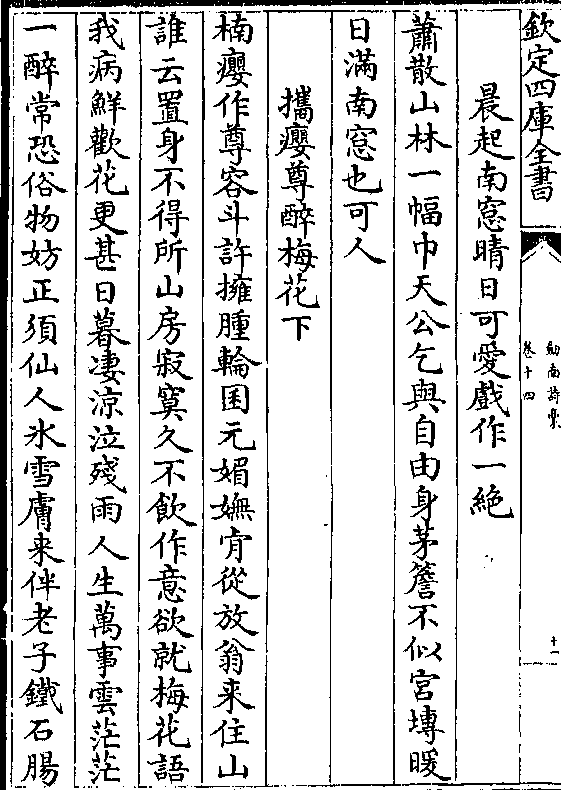 欽定四庫全書
劒南詩藁
卷十四
十一
晨起南窓晴日可愛戲作一絶
蕭散山林一幅巾天公乞與自由身茅簷不似宮塼暖
日滿南窓也可人
攜癭尊醉梅花下
楠癭作尊容斗許擁腫輪囷元媚嫵肯從放翁来住山
誰云置身不得所山房寂寞久不飲作意欲就梅花語
我病鮮歡花更甚日暮凄涼泣殘雨人生萬事雲茫茫
一醉常恐俗物妨正須仙人氷雪膚来伴老子鐵石腸